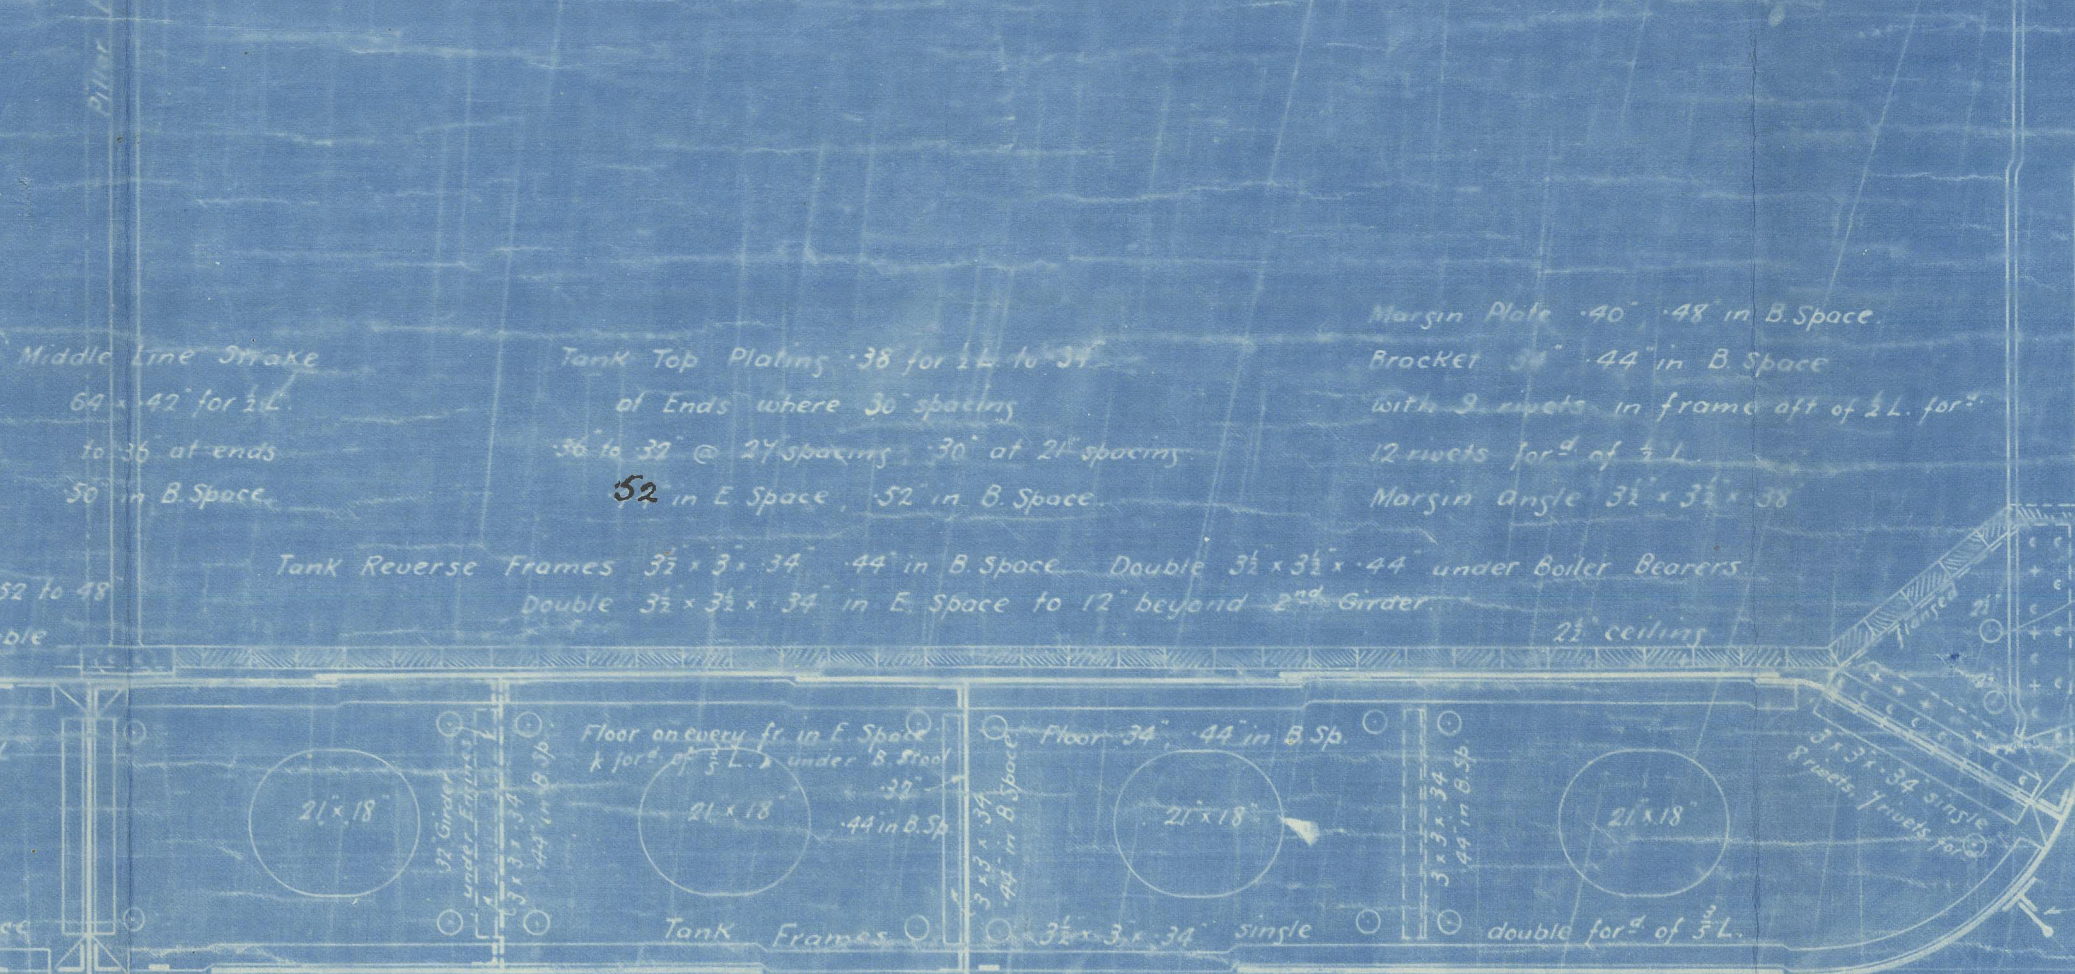 Pillar
Middle Line Strake
64 × ·42" for ½ L.
to ·36" at ends
·50" in B. Space
Tank Top Plating ·38 for ½ L to ·34"
at Ends where 30" spacing
·36" to ·32" @ 27" spacing ·30" at 21" spacing
·52 in E. Space, ·52" in B. Space.
Margin Plate ·40" ·48" in B. Space.
Bracket ·34" ·44" in B. Space
with 9 rivets in frame aft of ½ L. for.ᵈ
12 rivets for.ᵈ of ½ L.
Margin angle 3½" × 3½" × ·38"
Tank Reverse Frames 3½" × 3" × ·34" ·44" in B. Space Double 3½" × 3½" × ·44" under Boiler Bearers
Double 3½" × 3½" × ·34" in E. Space to 12" beyond 2nd Girder.
52 to 48
ble
2½" ceiling
flanged
Floor on every fr. in E Space
& for.ᵈ of ⅗ L. & under B. Stool
·32"
·44 in B.Sp
Floor ·34", ·44" in B Sp.
21" × 18"
21" × 18"
21" × 18"
21" × 18"
32" Girder
under Engines
3 × 3 × ·34"
·44" in B Sp.
3 × 3 × ·34
·44" in B Space
3 × 3 × ·34
·44" in B. Sp
3 × 3" × ·34" single
8 rivets, 7 rivets for.ᵈ
Tank Frames 3½ × 3 × ·34" single double for.ᵈ of ⅗ L.